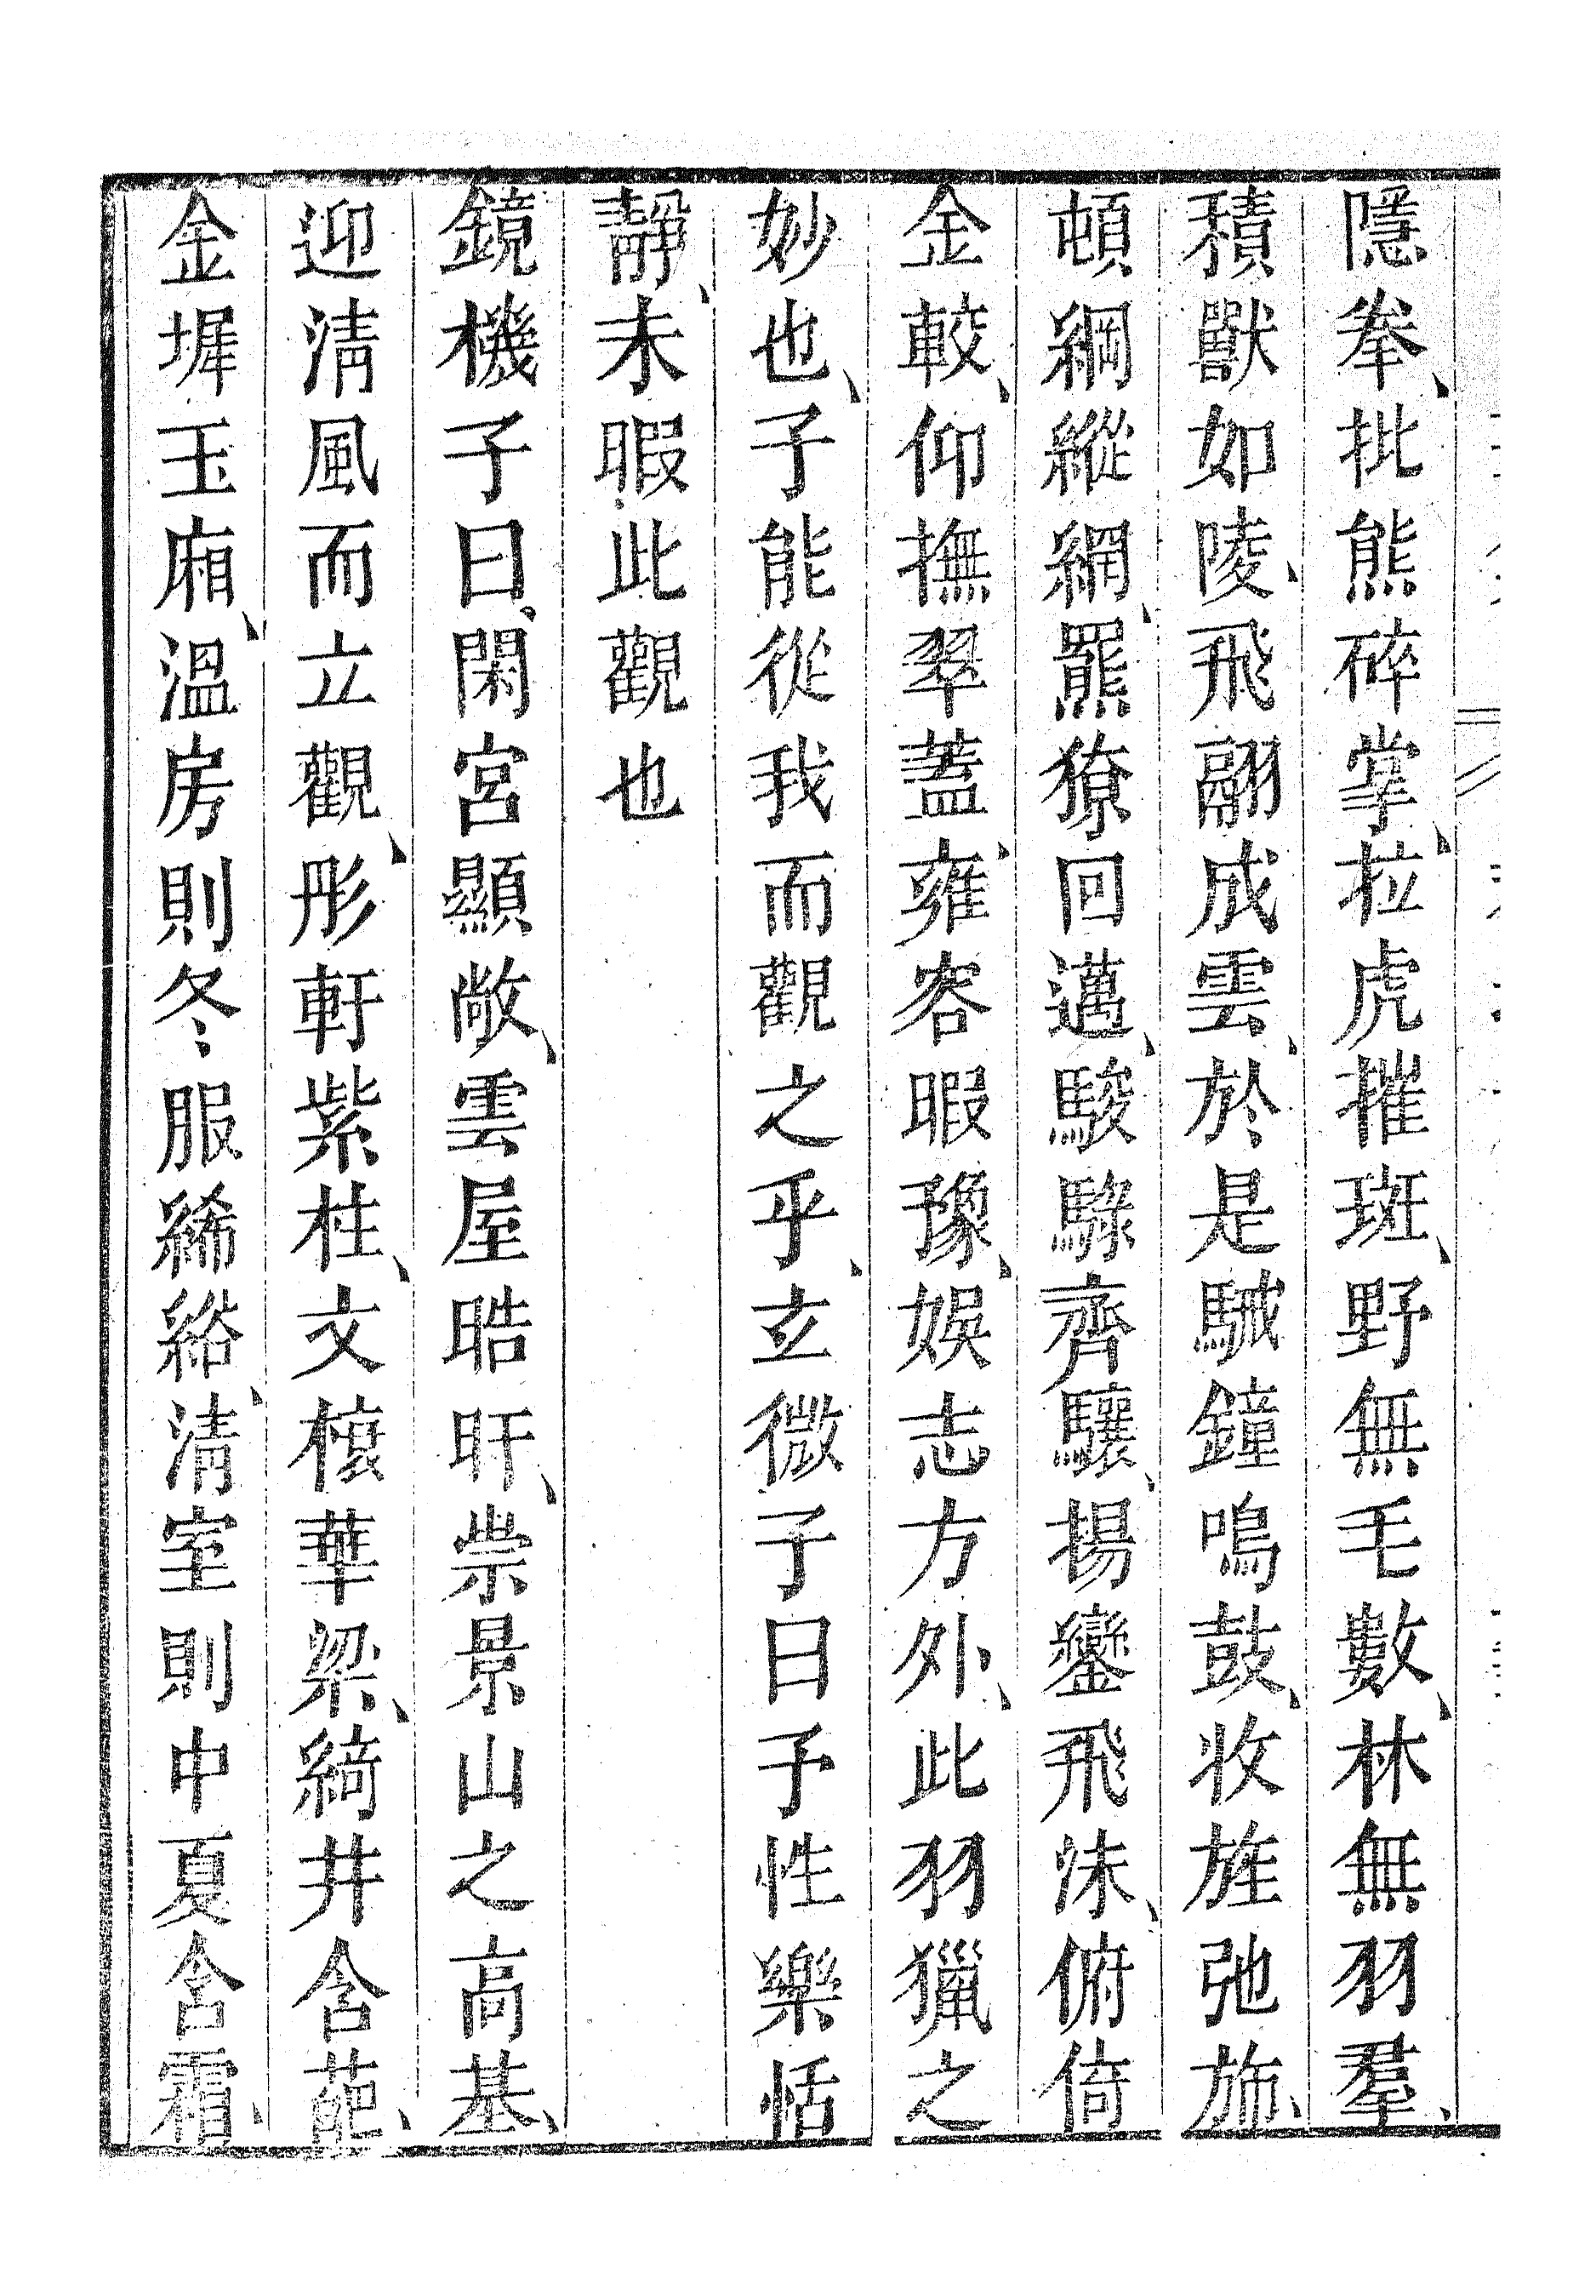 隱拳、批熊碎掌、拉虎摧斑、野無毛數、林無羽羣、
積獸如陵、飛翮成雲、於是駴鐘鳴鼓、收旌弛斾、
頓綱縱網、羆獠回邁、駿騄齊驤、揚鑾飛沬、俯倚
金較、仰撫翠蓋、雍容暇豫、娛志方外、此羽獵之
妙也、子能從我而觀之乎、玄微子曰予性樂恬
靜、未暇此觀也
鏡機子曰、閑宮顯敞、雲屋晧旰、崇景山之高基、
迎清風而立觀、彤軒紫柱、文榱華梁、綺井含葩、
金墀玉廂、溫房則冬服絺綌、清室則中夏含霜、